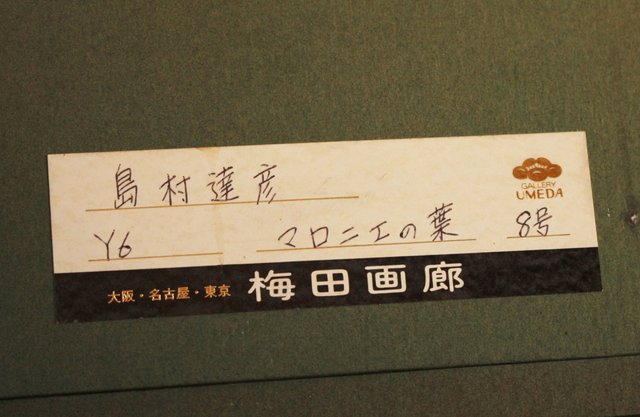 島村達彦
GALLERY
UMEDA
Y6 マロニエの葉 8号
大阪・名古屋・東京 梅田画廊